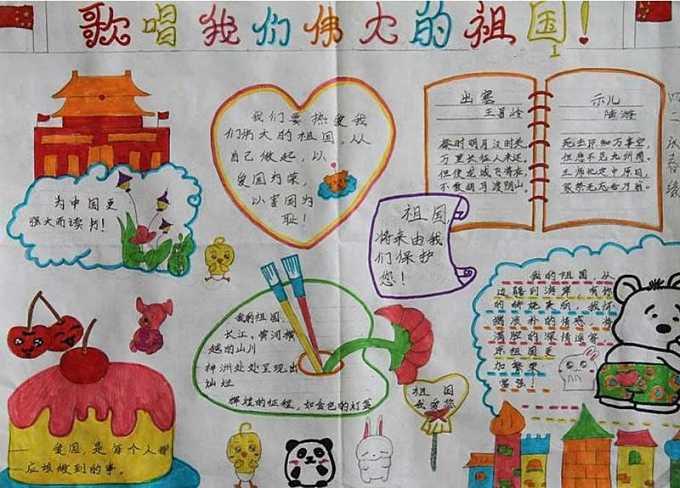 歌唱我们伟大的祖国！
为中国更
强大而读书！
我们要热爱我
们伟大的祖国，从
自己做起，以
爱国为荣，
以害国为
耻！
出塞
王昌龄
秦时明月汉时关
万里长征人未还，
但使龙城飞将在，
不教胡马渡阴山。
示儿
陆游
死去元知万事空，
但悲不见九州同。
王师北定中原日，
家祭无忘告乃翁。
四二
祖国
将来由我
们保护
您！
我的祖国，
长江、黄河横
越的山川
神州处处呈现出
灿烂
辉煌的征程，如金色的灯盏
我的祖国，从
边疆到海岸
祝
祖国更
加繁荣
富强！
祖国
我爱您
爱国，是每个人都
应该做到的事。